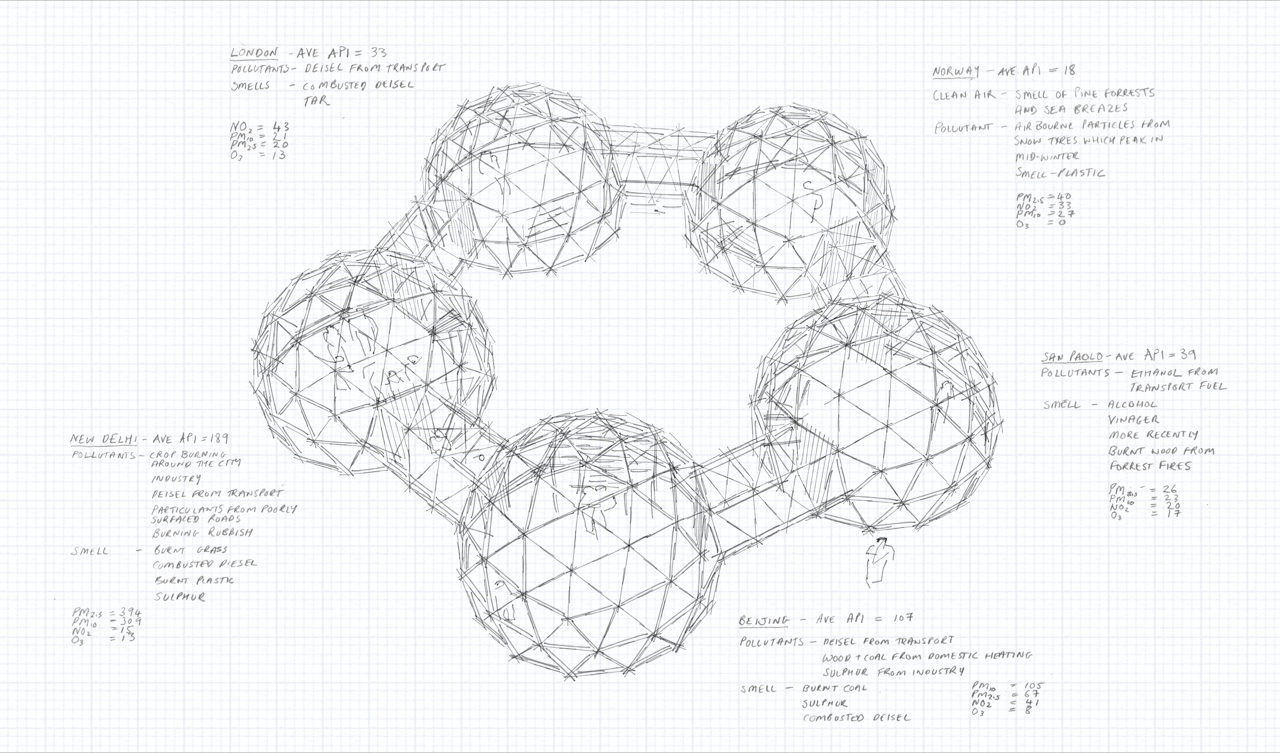 LONDON - AVE API = 33
POLLUTANTS - DEISEL FROM TRANSPORT
SMELLS - COMBUSTED DEISEL
TAR
NO2 = 43
PM10 = 21
PM2.5 = 20
O3 = 13
NORWAY - AVE API = 18
CLEAN AIR - SMELL OF PINE FORRESTS
AND SEA BREAZES
POLLUTANT - AIRBOURNE PARTICLES FROM
SNOW TYRES WHICH PEAK IN
MID-WINTER
SMELL - PLASTIC
PM2.5 = 40
NO2 = 33
PM10 = 27
O3 = 0
SAN PAOLO - AVE API = 39
POLLUTANTS - ETHANOL FROM
TRANSPORT FUEL
SMELL - ALCOHOL
VINAGER
MORE RECENTLY
BURNT WOOD FROM
FORREST FIRES
PM2.5 = 26
PM10 = 23
NO2 = 20
O3 = 17
NEW DELHI - AVE API = 189
POLLUTANTS - CROP BURNING
AROUND THE CITY
INDUSTRY
DEISEL FROM TRANSPORT
PARTICULANTS FROM POORLY
SURFACED ROADS
BURNING RUBBISH
SMELL - BURNT GRASS
COMBUSTED DIESEL
BURNT PLASTIC
SULPHUR
PM2.5 = 394
PM10 = 309
NO2 = 15
O3 = 13
BEIJING - AVE API = 107
POLLUTANTS - DEISEL FROM TRANSPORT
WOOD + COAL FROM DOMESTIC HEATING
SULPHUR FROM INDUSTRY
SMELL - BURNT COAL
SULPHUR
COMBUSTED DEISEL
PM10 = 105
PM2.5 = 67
NO2 = 41
O3 = 8